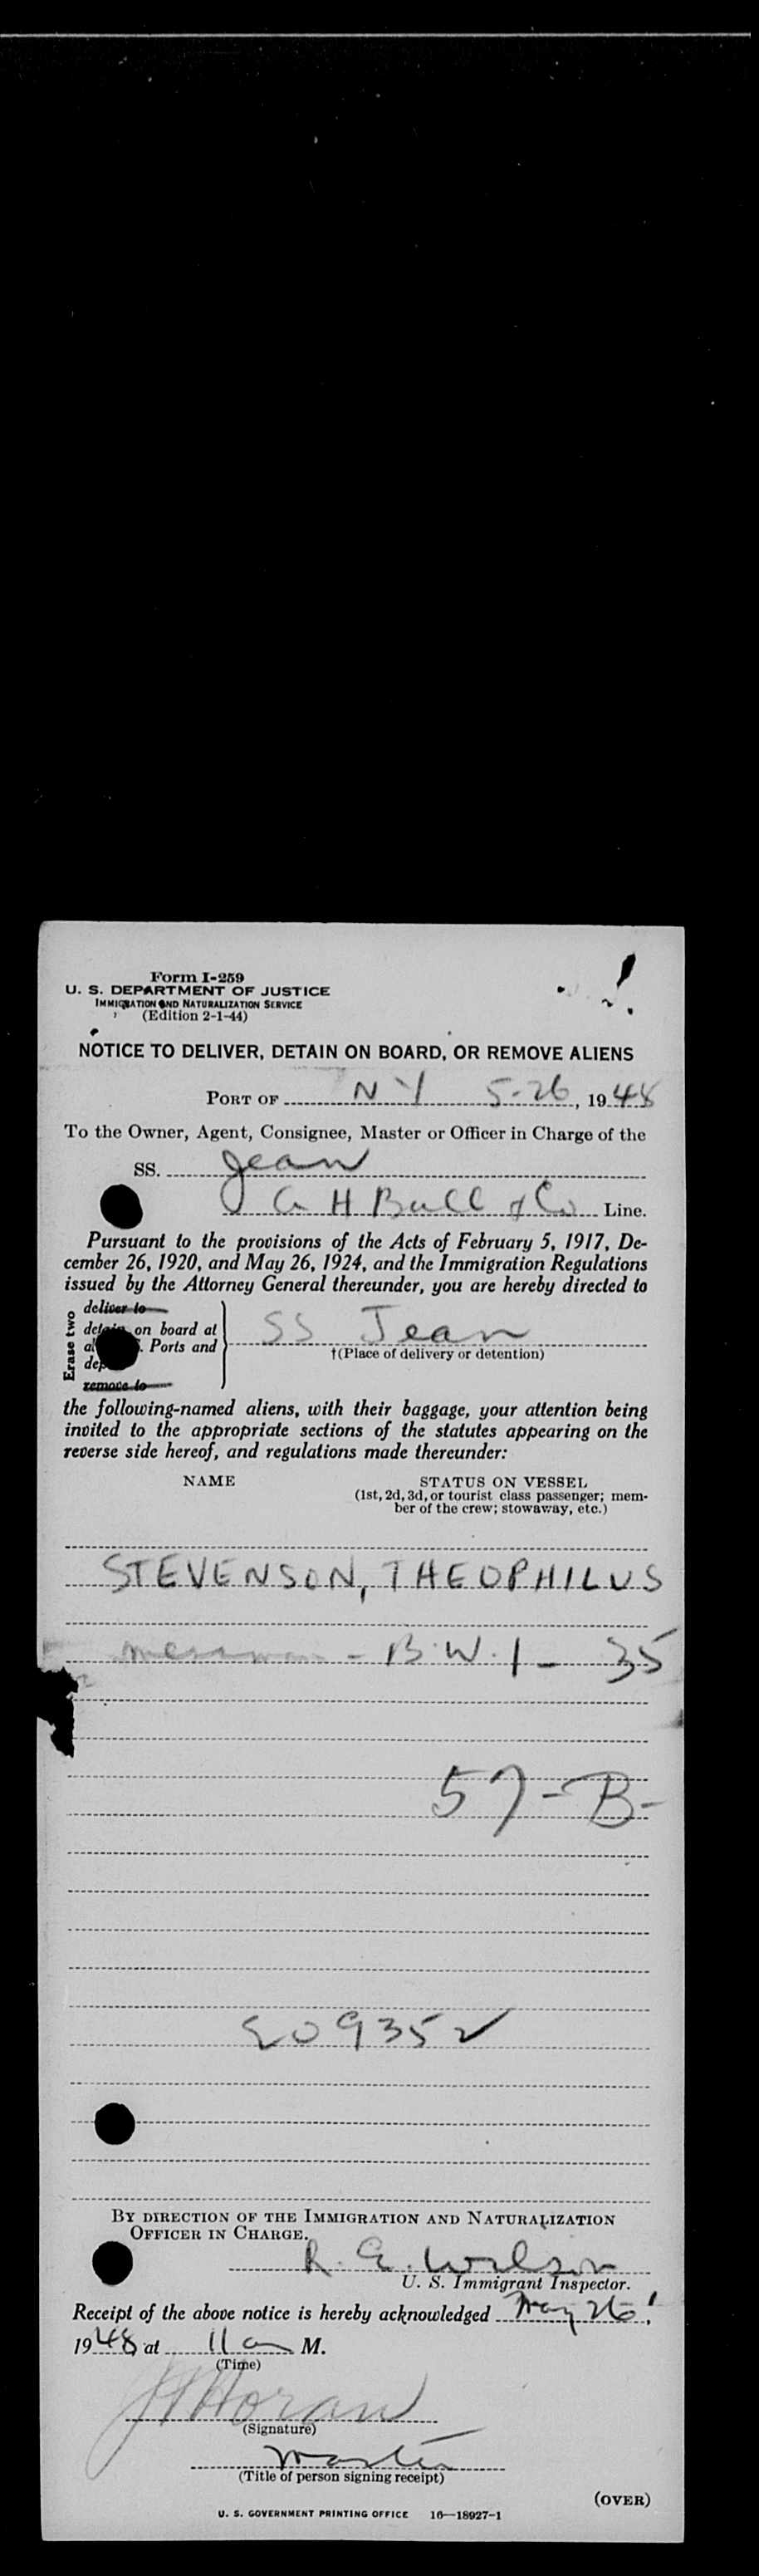 Form I-259
U. S. DEPARTMENT OF JUSTICE
IMMIGRATION AND NATURALIZATION SERVICE
(Edition 2-1-44)
NOTICE TO DELIVER, DETAIN ON BOARD, OR REMOVE ALIENS
PORT OF N Y 5-26, 1948
To the Owner, Agent, Consignee, Master or Officer in Charge of the
SS. Jean
A H Bull & Co Line.
Pursuant to the provisions of the Acts of February 5, 1917, De-
cember 26, 1920, and May 26, 1924, and the Immigration Regulations
issued by the Attorney General thereunder, you are hereby directed to
Erase two
deliver to
detain on board at
Ports and
remove to
SS Jean
†(Place of delivery or detention)
the following-named aliens, with their baggage, your attention being
invited to the appropriate sections of the statutes appearing on the
reverse side hereof, and regulations made thereunder:
NAME STATUS ON VESSEL
(1st, 2d, 3d, or tourist class passenger; mem-
ber of the crew; stowaway, etc.)
STEVENSON, THEOPHILUS
messman - B.W.I - 35
57-B-
209352
BY DIRECTION OF THE IMMIGRATION AND NATURALIZATION
OFFICER IN CHARGE.
R. G. Wilson
U. S. Immigrant Inspector.
Receipt of the above notice is hereby acknowledged May 26,
1948 at 11 a M.
(Time)
Horan
(Signature)
Master
(Title of person signing receipt)
(OVER)
U. S. GOVERNMENT PRINTING OFFICE 16—18927-1